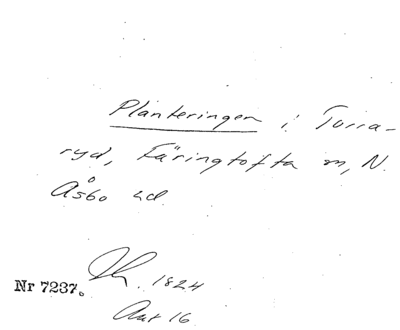 Planteringen i Torra-
ryd, Färingtofta sn, N.
Åsbo hd.
1824
Nr 7237.
Akt 16